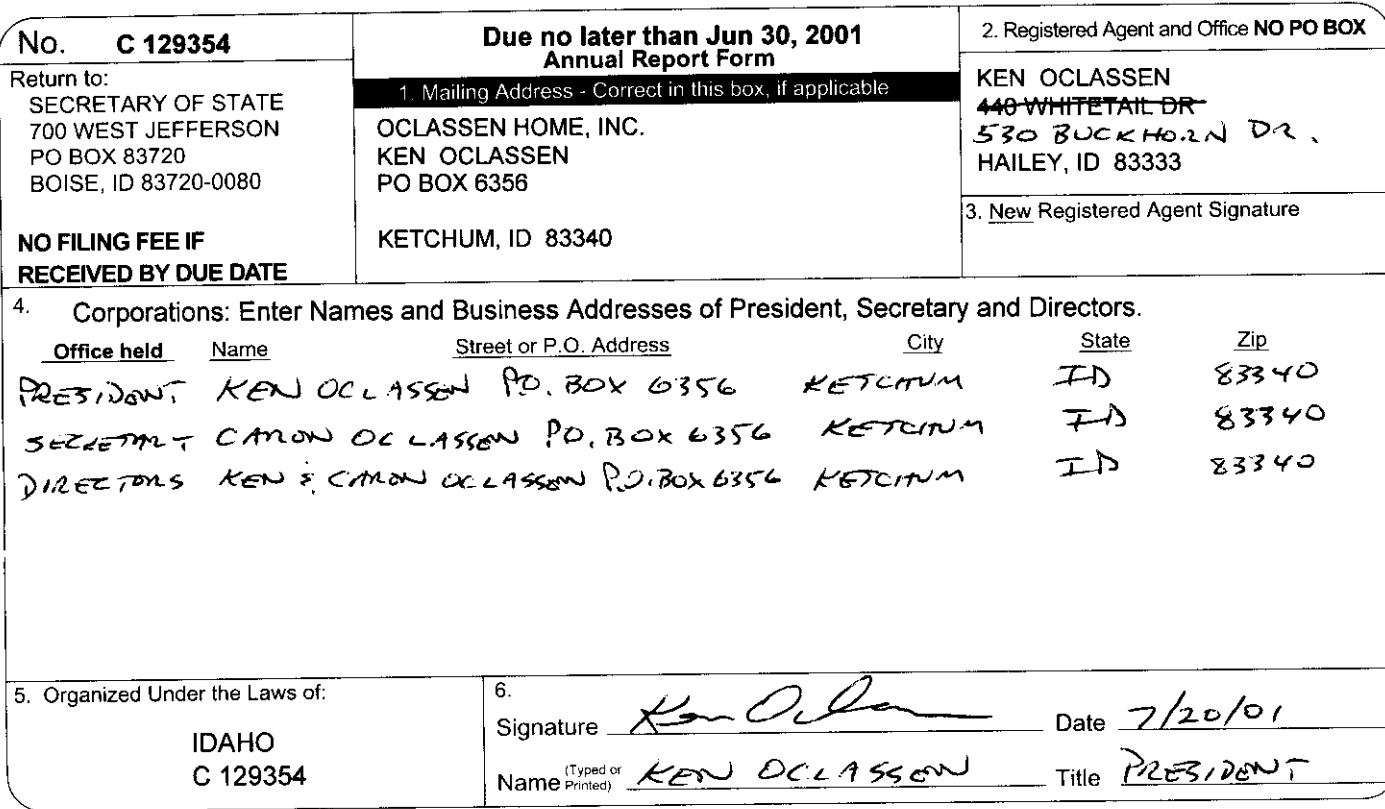 No. C 129354
Return to:
SECRETARY OF STATE
700 WEST JEFFERSON
PO BOX 83720
BOISE, ID 83720-0080
NO FILING FEE IF
RECEIVED BY DUE DATE
Due no later than Jun 30, 2001
Annual Report Form
1. Mailing Address - Correct in this box, if applicable
OCLASSEN HOME, INC.
KEN OCLASSEN
PO BOX 6356
KETCHUM, ID 83340
2. Registered Agent and Office NO PO BOX
KEN OCLASSEN
440 WHITETAIL DR
530 BUCKHORN DR.
HAILEY, ID 83333
3. New Registered Agent Signature
4. Corporations: Enter Names and Business Addresses of President, Secretary and Directors.
Office held Name Street or P.O. Address City State Zip
PRESIDENT KEN OCLASSEN P.O. BOX 6356 KETCHUM ID 83340
SECRETARY CARON OCLASSEN P.O. BOX 6356 KETCHUM ID 83340
DIRECTORS KEN & CARON OCLASSEN P.O. BOX 6356 KETCHUM ID 83340
5. Organized Under the Laws of:
IDAHO
C 129354
6.
Signature Ken Oclassen Date 7/20/01
Name (Typed or Printed) KEN OCLASSEN Title PRESIDENT